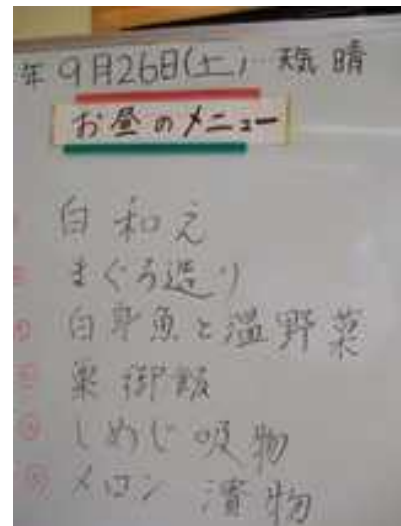 年 9月26日(土) 天気 晴
お昼のメニュー
白和え
まぐろ造り
白身魚と温野菜
栗御飯
しめじ吸物
メロン 漬物